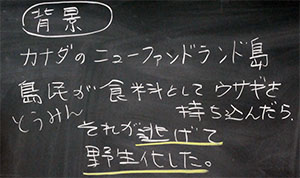 背景
カナダのニューファンドランド島
島民が食料としてウサギを
とうみん 持ち込んだら、
それが逃げて
野生化した。